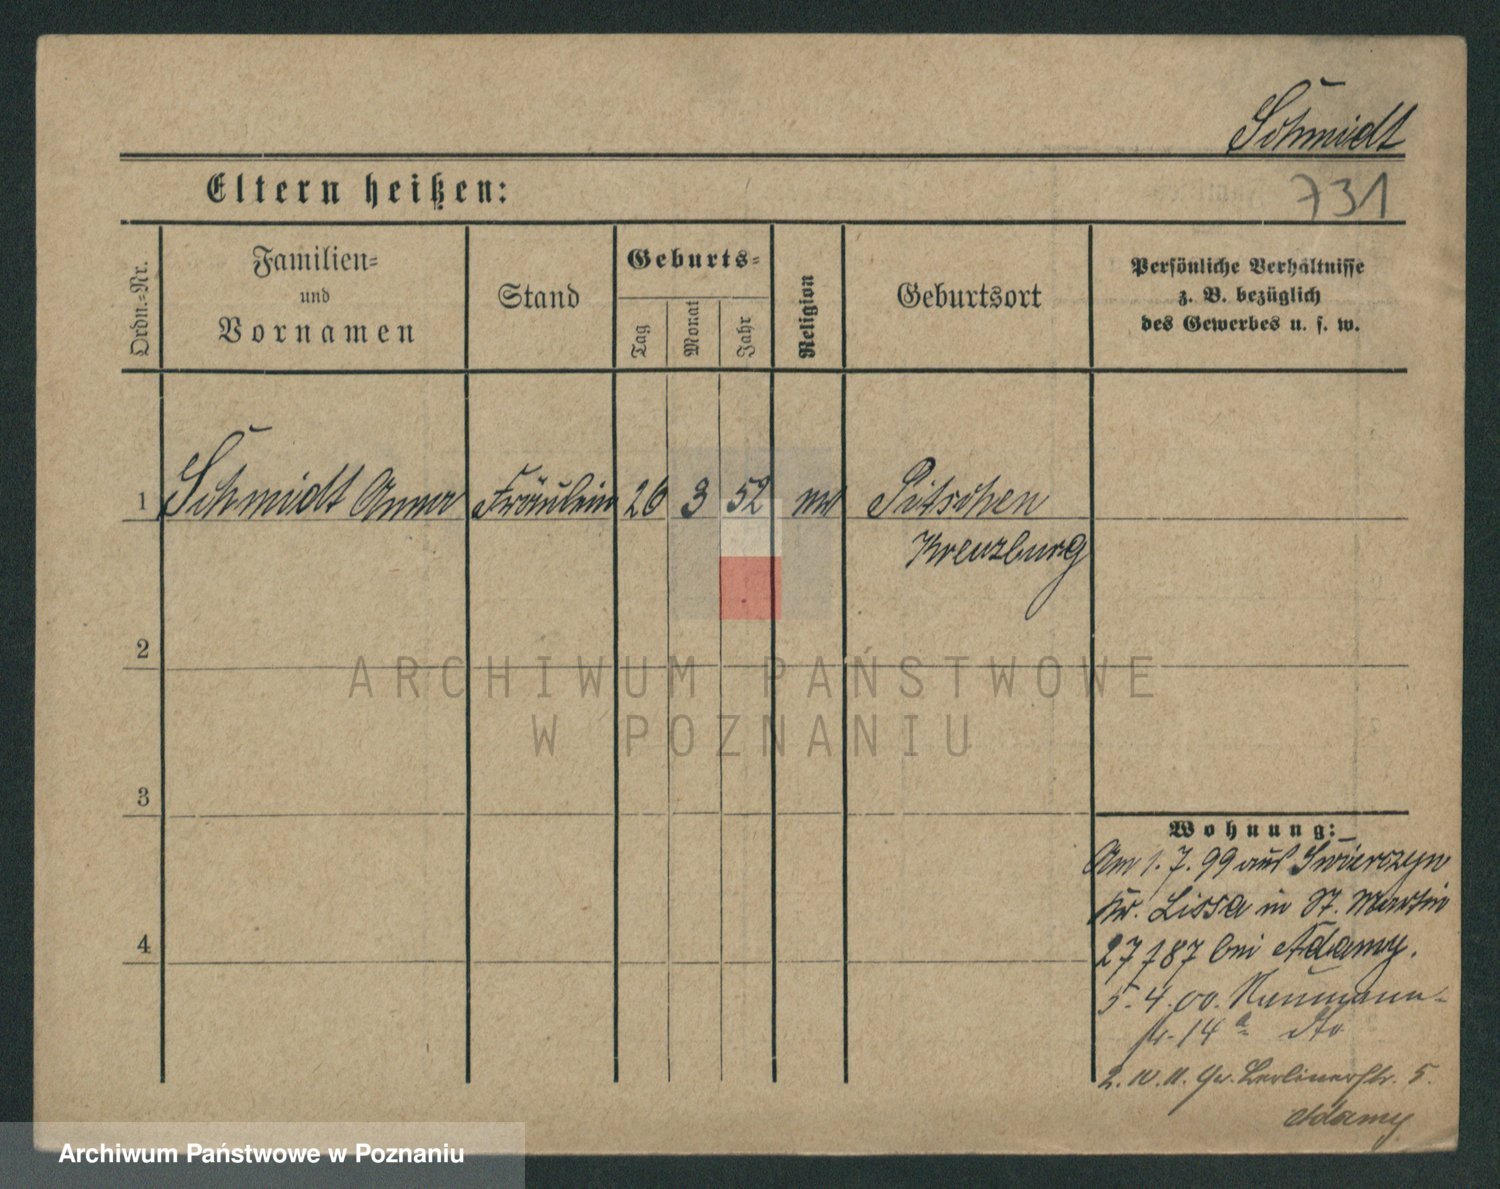 Schmidt
Eltern heißen:
731
Ordn.=Nr.
Familien=
und
Vornamen
Stand
Geburts=
Tag
Monat
Jahr
Religion
Geburtsort
Persönliche Verhältnisse
z. B. bezüglich
des Gewerbes u. s. w.
1 Schmidt Anna Fräulein 26 3 52 Pitschen
Kreuzburg
2
3
4
Wohnung:
Am 1.7.99 aus Swierczyn
Kr. Lissa in St. Martin
27 bei Adamy.
5.4.00. Naumann-
str. 14a dto
Gr. Berlinerstr. 5.
Adamy
ARCHIWUM PAŃSTWOWE
W POZNANIU
Archiwum Państwowe w Poznaniu